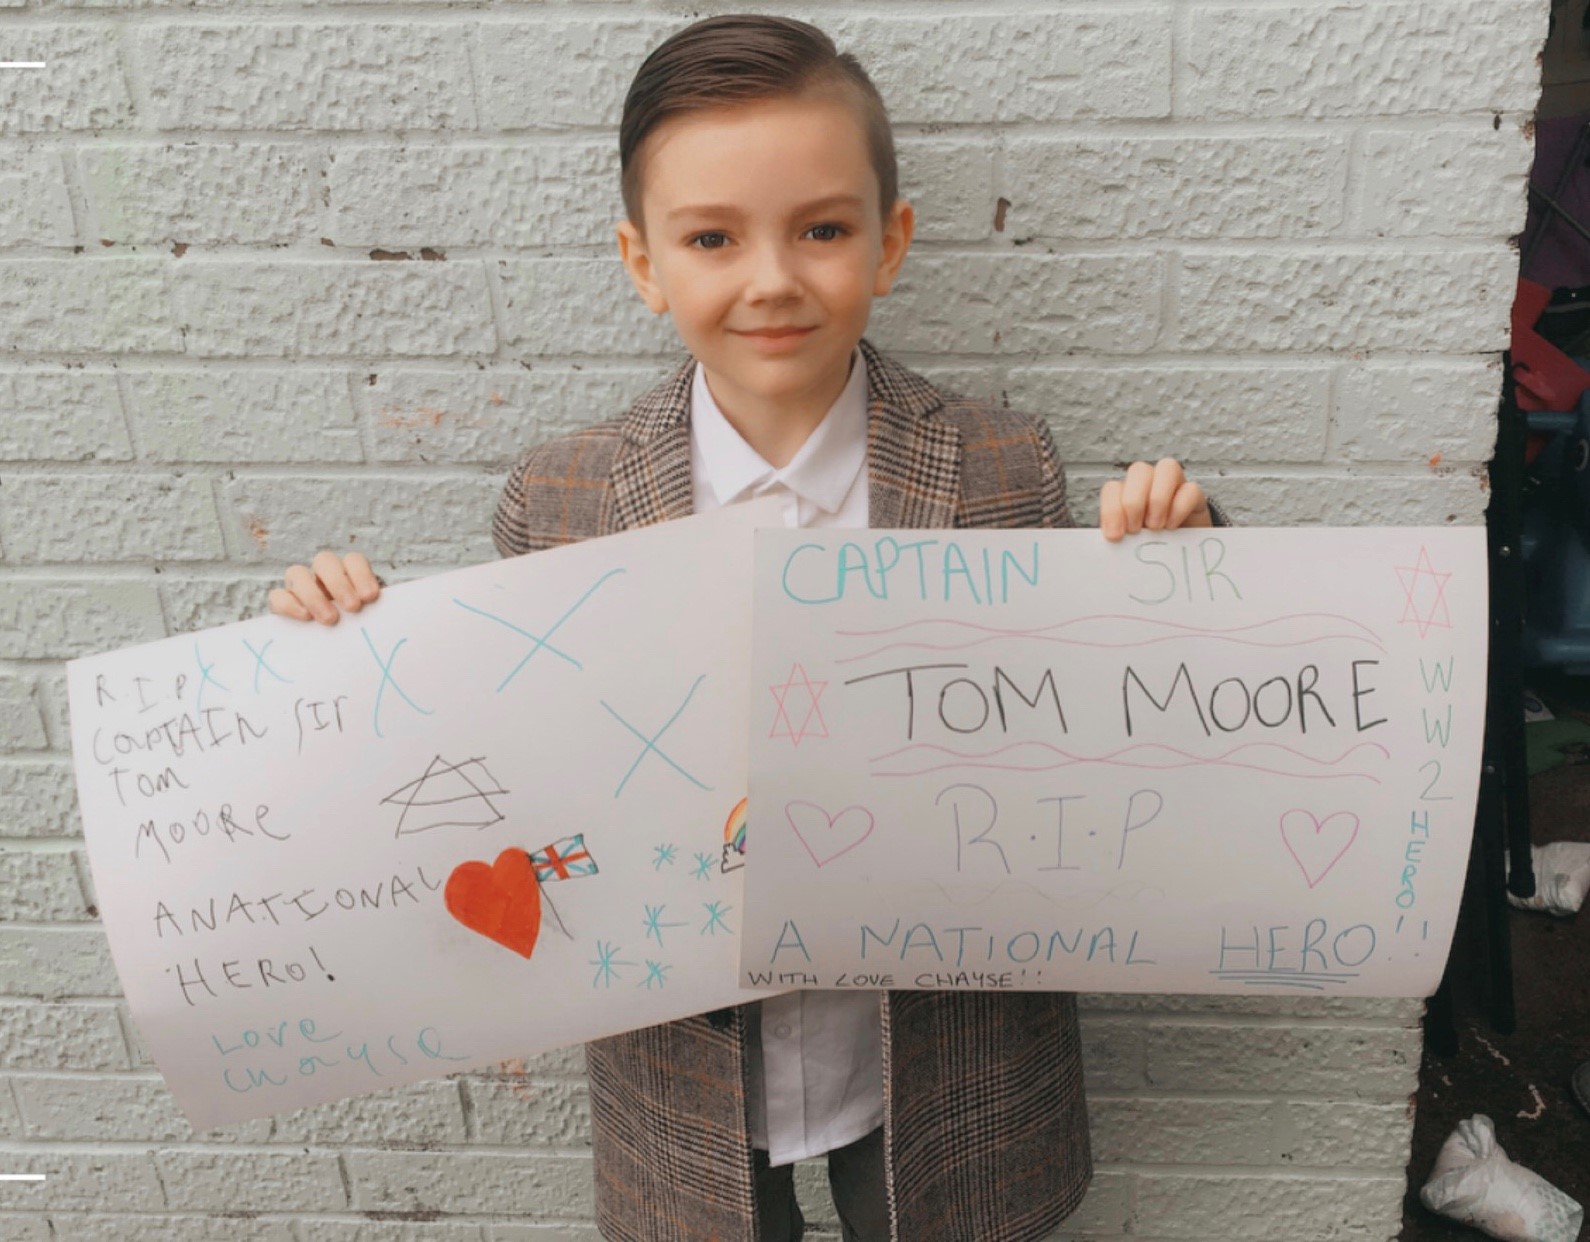 R.I.P X X
CAPTAIN SIR
Tom
MOORe
A NATIONAL
HERO!
Love
Chayse
CAPTAIN SIR
TOM MOORE
R.I.P
A NATIONAL HERO!!
WITH LOVE CHAYSE!!
WW2 HERO!